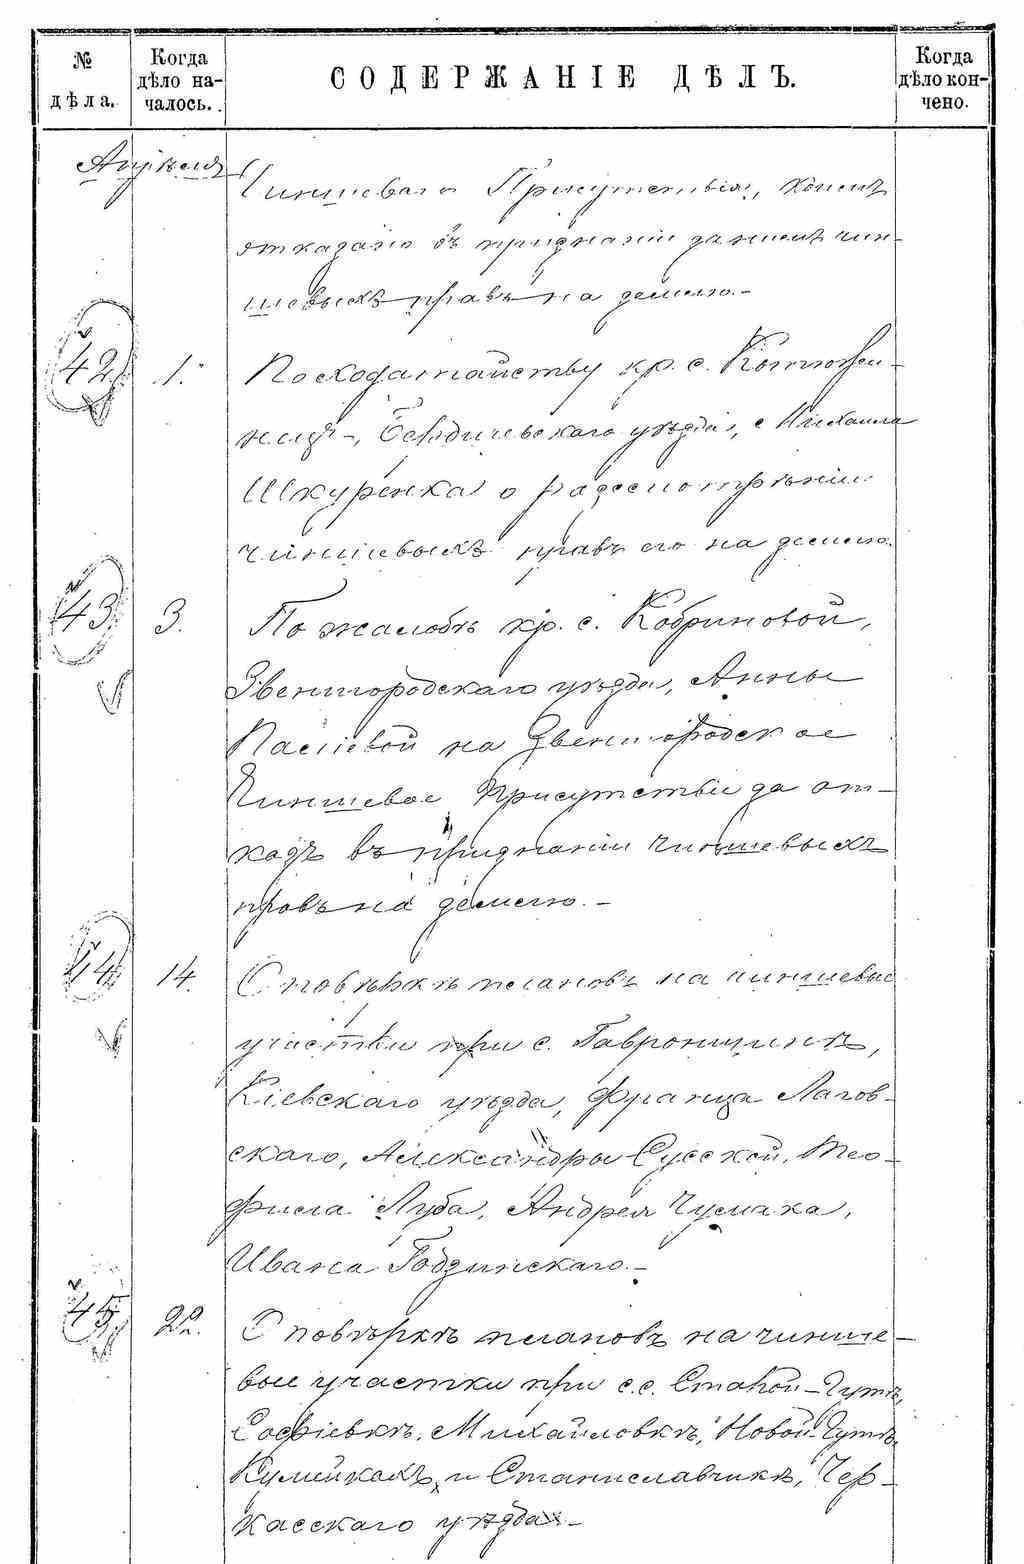 № дѣла.
Когда дѣло на-чалось.
СОДЕРЖАНІЕ ДѢЛЪ.
Когда дѣло кон-чено.
Апрѣля
Чиншеваго Присутствія, коимъ
отказано въ признаніи за нимъ чин-
шевыхъ правъ на землю.-
42 1. По ходатайству кр. с.
ницъ-, Бердичевскаго уѣзда, Михаила
Шкуренка о разсмотрѣніи
чиншевыхъ правъ его на землю.
43 3. По жалобѣ кр. с. Кобриновой,
Звенигородскаго уѣзда, Анны
на Звенигородское
Чиншевое Присутствіе за от-
казъ въ признаніи чиншевыхъ
правъ на землю.-
44 14. О повѣркѣ плановъ на чиншевые
участки при с. Гавронщинѣ,
Кіевскаго уѣзда, Франца Лагов-
скаго, Александры Сусской, Тео-
фила Луба, Андрея Чумака,
Ивана Гобзинскаго.-
45 22. О повѣркѣ плановъ на чинше-
вые участки при с.с. Старой-Гутѣ,
Софіевкѣ, Михайловкѣ, Новой-Гутѣ,
Кумейкахъ и Станиславчикѣ, Чер-
касскаго уѣзда.-